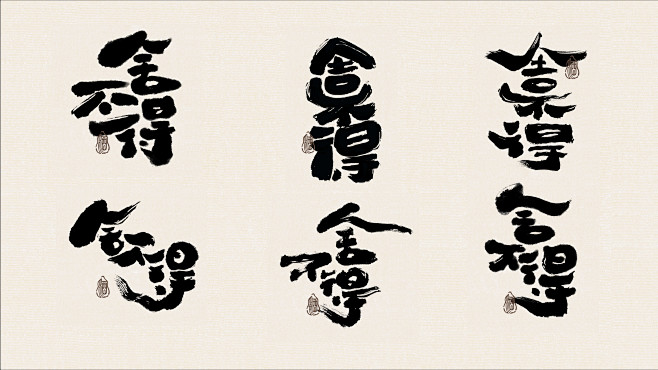 舍不得
舍不得
舍不得
舍不得
舍不得
舍不得